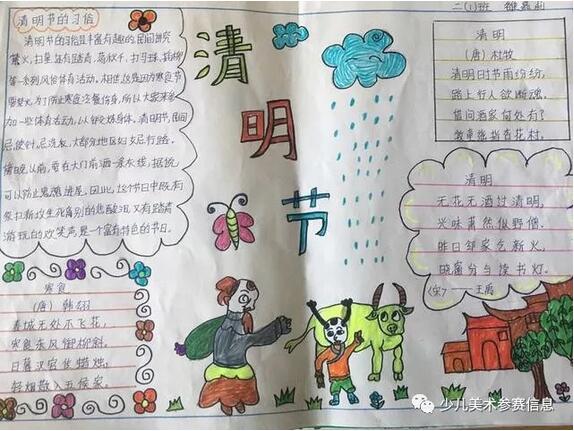 清明节的习俗
清明节的习俗是丰富有趣的,民间讲究
禁火、扫墓,还有踏青、荡秋千、打马球、插柳
等一系列风俗体育活动。相传这是因为寒食节
要禁火,为了防止寒食冷餐伤身,所以大家来参
加一些体育活动,以锻炼身体。清明节,民间
忌使针,忌洗衣,大部分地区妇女忌行路。
傍晚以前,要在大门前洒一条灰线,据说
可以防止鬼魂进。因此,这个节日中既有
祭扫新坟生死离别的悲酸泪,又有踏青
游玩的欢笑声,是一个富有特色的节日。
寒食
(唐) 韩翃
春城无处不飞花,
寒食东风御柳斜。
日暮汉宫传蜡烛,
轻烟散入五侯家。
清
明
节
二(1)班
清明
(唐) 杜牧
清明时节雨纷纷,
路上行人欲断魂。
借问酒家何处有?
牧童遥指杏花村。
清明
无花无酒过清明,
兴味萧然似野僧。
昨日邻家乞新火,
晓窗分与读书灯。
(宋)——王禹
少儿美术参赛信息